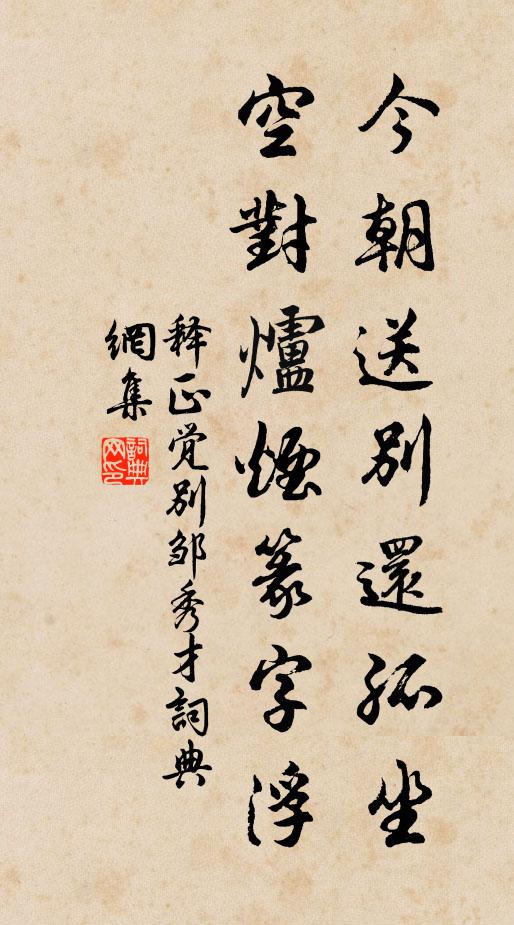 今朝送別還孤坐
空對爐煙篆字浮
释正觉別邹秀才詞典
網集
詞典网印